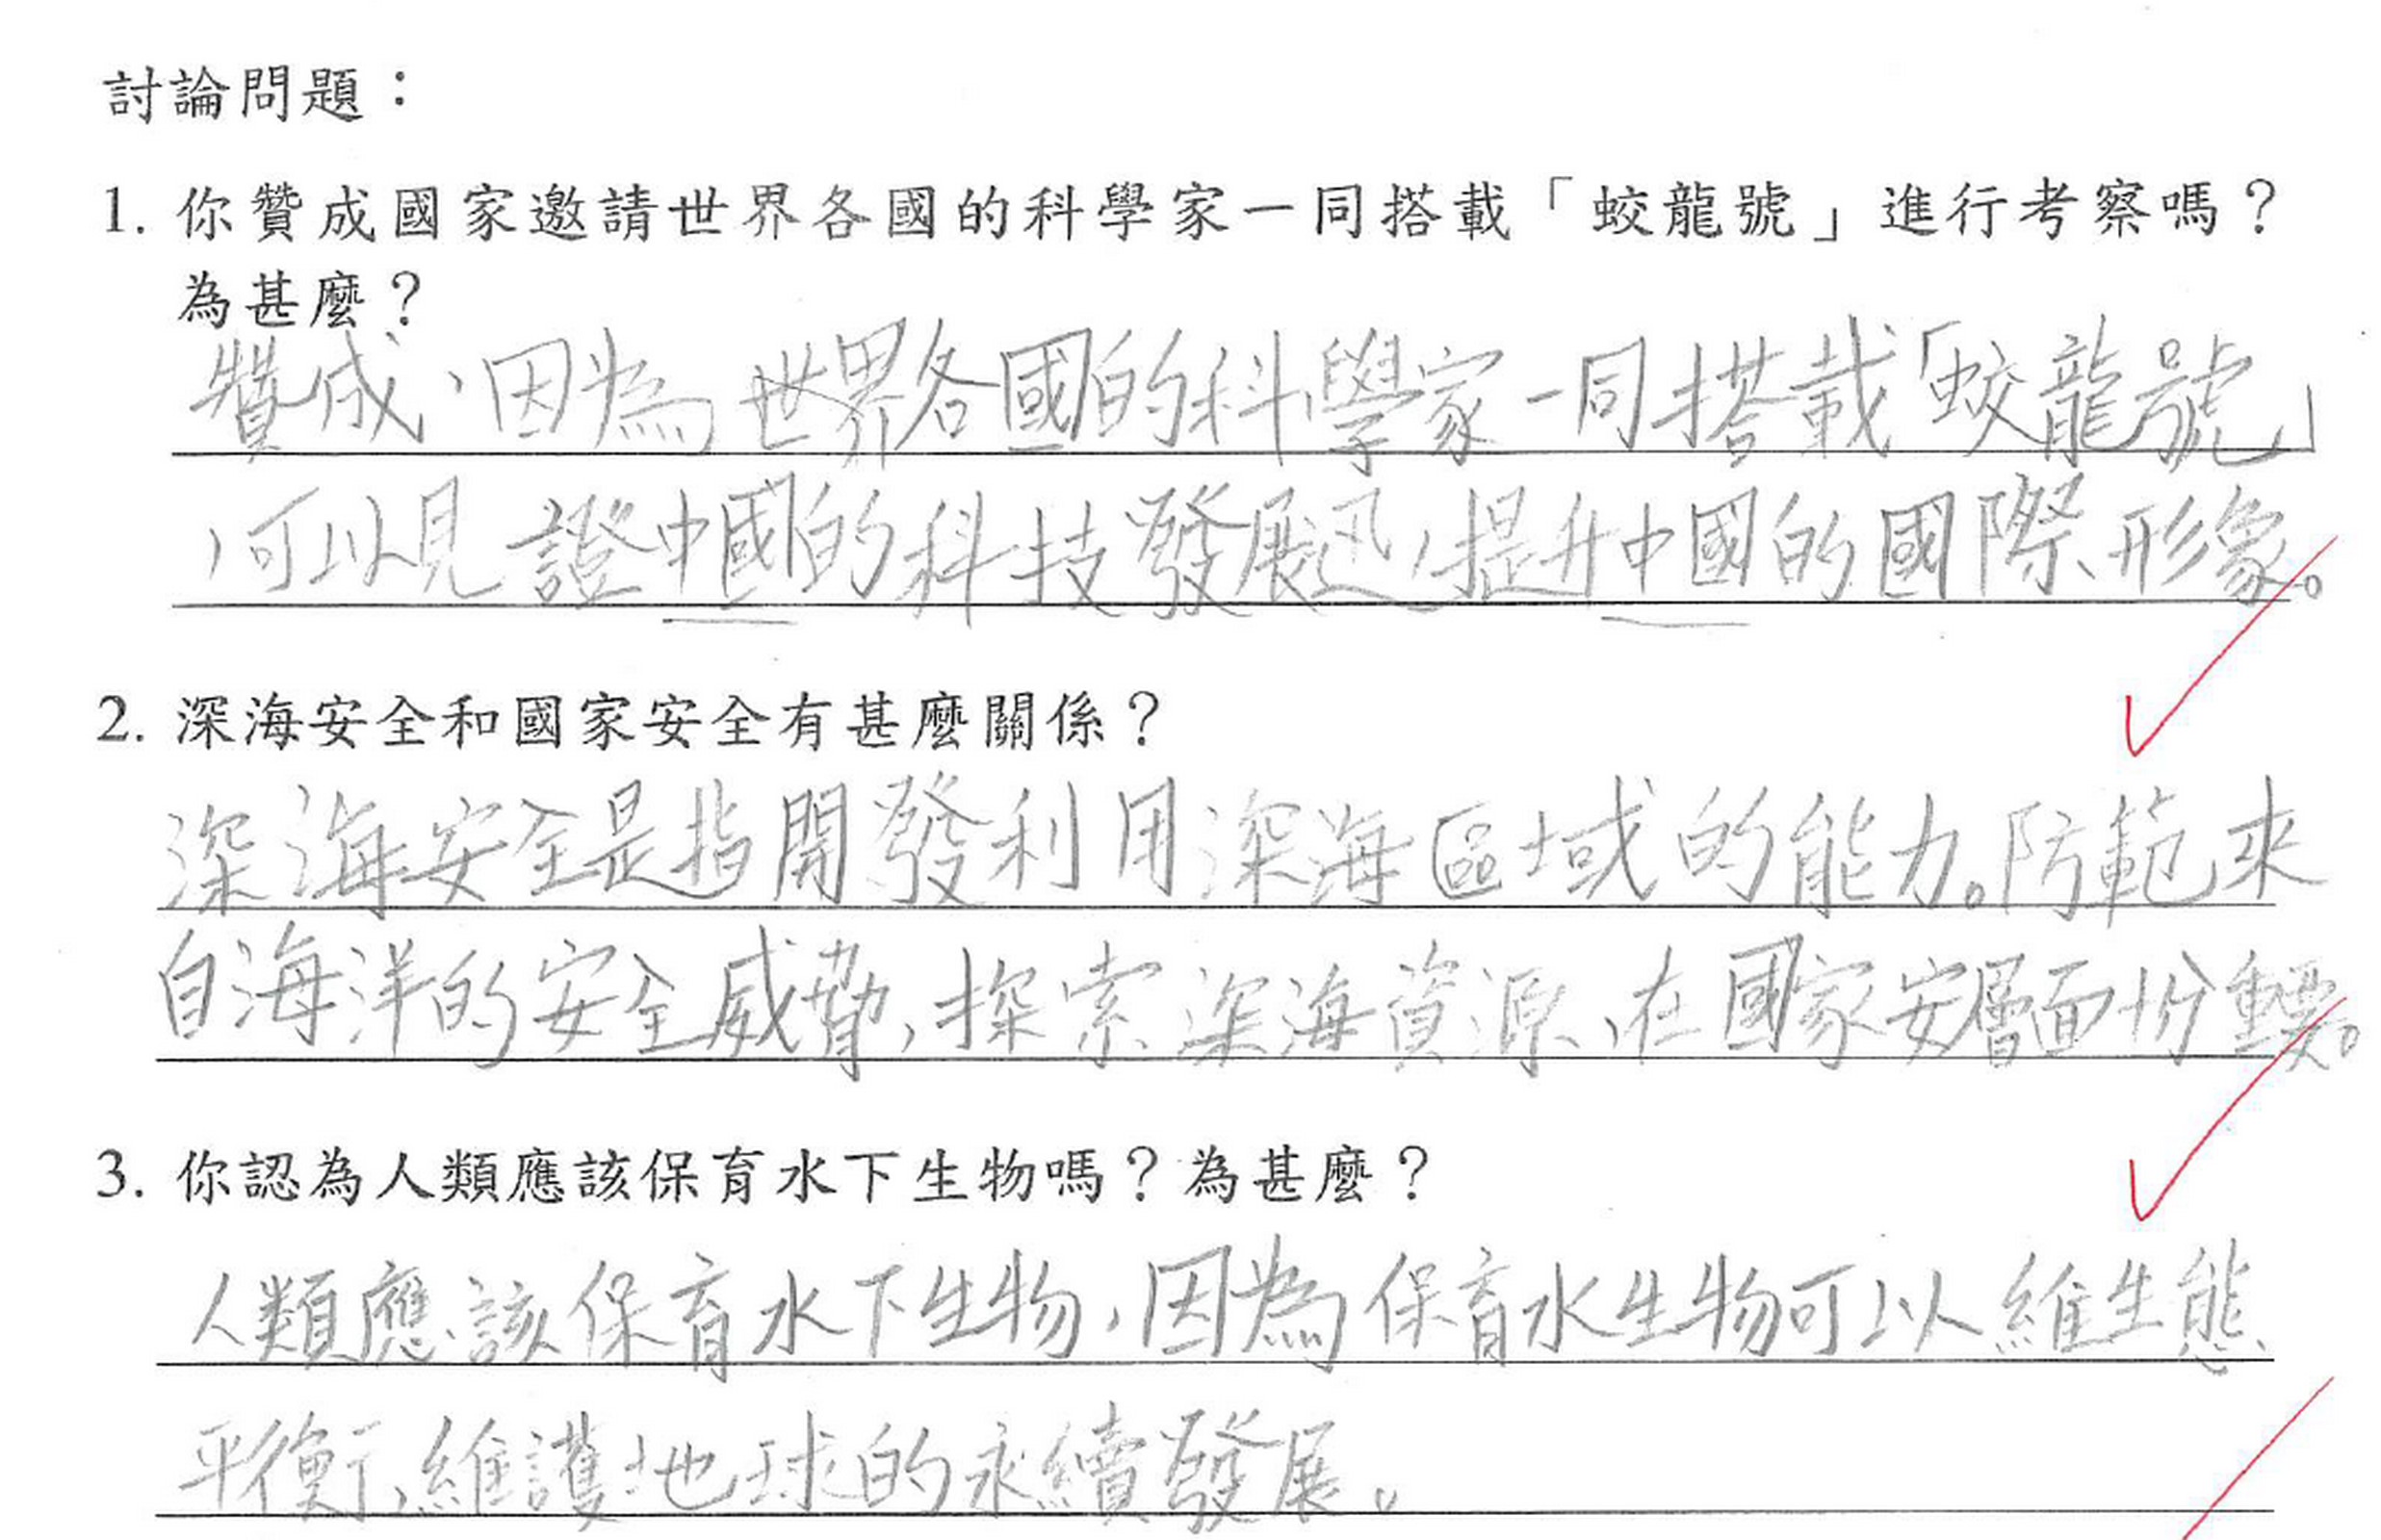 討論問題：
1. 你贊成國家邀請世界各國的科學家一同搭載「蛟龍號」進行考察嗎？
為甚麼？
贊成，因為世界各國的科學家一同搭載「蛟龍號」
，可以見證中國的科技發展迅，提升中國的國際形象。
2. 深海安全和國家安全有甚麼關係？
深海安全是指開發利用深海區域的能力。防範來
自海洋的安全威脅，探索深海資源，在國家安層面十分重要。
3. 你認為人類應該保育水下生物嗎？為甚麼？
人類應該保育水下生物，因為保育水生物可以維生態
平衡，維護地球的永續發展。